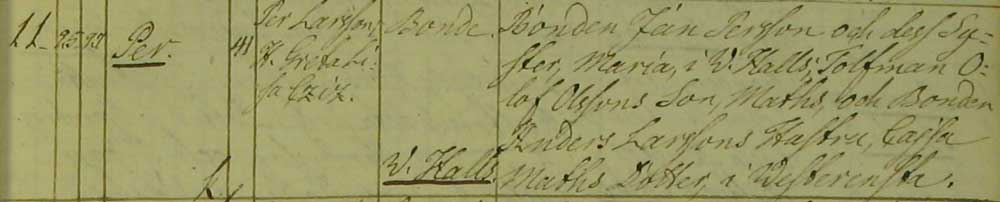 11. 25. 27 Per. 41 Per Larsson, Bonde. Bonden Jan Persson och dess Sy-
H. Greta Li- ster, Maria, i V. Halls; Tolfman O-
sa lof Olssons Son, Maths, och Bonden
Anders Larssons Hustru, Cajsa
V. Halls. Maths Dotter, i Westerensta.